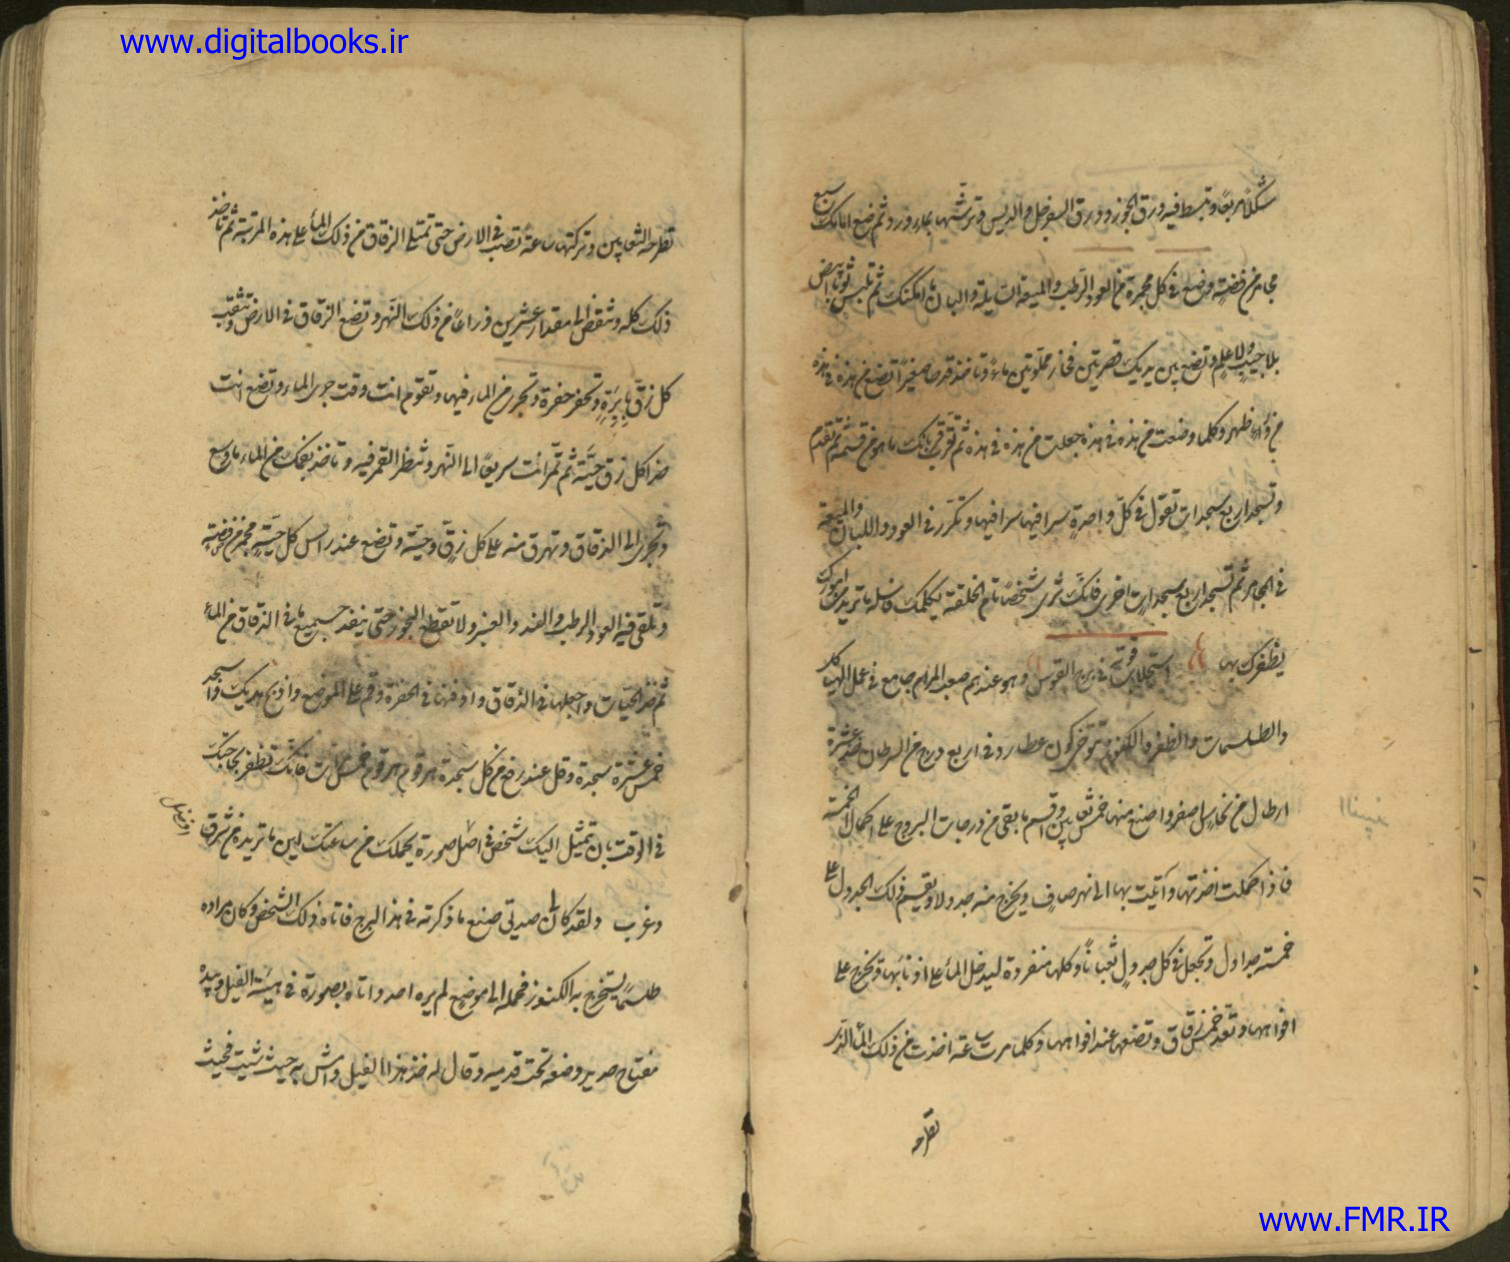 www.digitalbooks.ir
شكلاً مربعًا وتبسط فيه ورق الجوز وورق السفرجل والريس وترشها بماء ورد ثم ضع امامك سبع
مجامر من فضة وضع في كل مجمرة من العود الرطب والميعة السايلة واللبان ما امكنك ثم تلبس ثوبا ابيض
بلا جيب ولا علم وتضع بين يديك قصريتين فخار مملوتين ماءً وتاخذ قدحا صغيرًا تضع من هذه في هذه
من وراء ظهر وكلما وضعت من هذه في هذه جعلت من هذه في هذه ثم تقرب بانك ما هو من قسمته ثم تقدم
وتسجد اربع سجدات تقول في كل واحدة سرافيها سرافيها وتكرر في العود واللبان والميعة
في المجامر ثم تسجد اربع سجدات اخرى فانك ترى شخصًا تام الخلقة يكلمك فاسله ما تريد من امورك
يظفرك بها استجلاب قوته في برج القوس وهو عندهم صعب المرام جامع في عمل الهياكل
والطلسمات والظفر بالكنوز تتوخى كون عطارد في اربع درج من السرطان خذ عشرة
ارطال من نحاس اصفر واصنع منها خمس ثعابين واقسم ما بقى من درجات البروج على اكمال الخمسة
فاذا كملت اخذتها وآتيت بها الى نهر صاف ويخرج منه جدولا ويقسم ذلك الجدول على
خمسة جداول وتجعل في كل جدول ثعبانًا وكلها منفردة ليدخل الماء على اذنابها وتخرج على
افواهها وتعد خمس زقاق وتضعها عند افواهها وكلما مرت ساعة اخذت من ذلك الماء الذى
تطرحه
تطرحه الثعابين وتركتها ساعة تصب في الارض حتى تمتلئ الزقاق من ذلك الماء على هذه المرتبة ثم تاخذ
ذلك كله وتنقض الى مقدار عشرين ذراعًا من ذلك النهر وتضع الزقاق في الارض وتثقب
كل زق بابرة وتحفر حفرة وتجرى من الماء فيها وتقوم انت وقت جرى الماء وتضع انت
حذا كل زق حية ثم تمر انت سريعًا الى النهر وتنظر القمر فيه وتاخذ بفمك من الماء ما وسع
وتجرى الى الزقاق وتهرق منه على كل زق وحية وتضع عند راس كل حية مجمر من فضة
وتلقى فيه العود الرطب والند والعنبر ولا تقطع البخور حتى ينفد جميع ما في الزقاق من الماء
ثم خذ الحيات واجعلها في الزقاق وادفنها في الحفرة وقم على الموضع واذبح بيديك واسجد
خمس عشرة سجدة وقل عند رفع من كل سجدة هرقوم هرقوم خمس مرات فانك تظفر بحاجتك
في الوقت بان تمثيل اليك شخص في اصل صورة يحملك من ساعتك اين ما تريده من شرق
وغرب ولقد كان لى صديق صنع ما ذكرته في هذا البرج فاتاه ذلك الشخص وكان مراده
طلسمًا يستخرج به الكنوز فحمله الى موضع لم يره احد واتاه بصورة في هيئة الفيل وبيده
مفتاح حديد وضعه تحت قدميه وقال له خذ هذا الفيل وامش به حيث شيت فحيث
www.FMR.IR